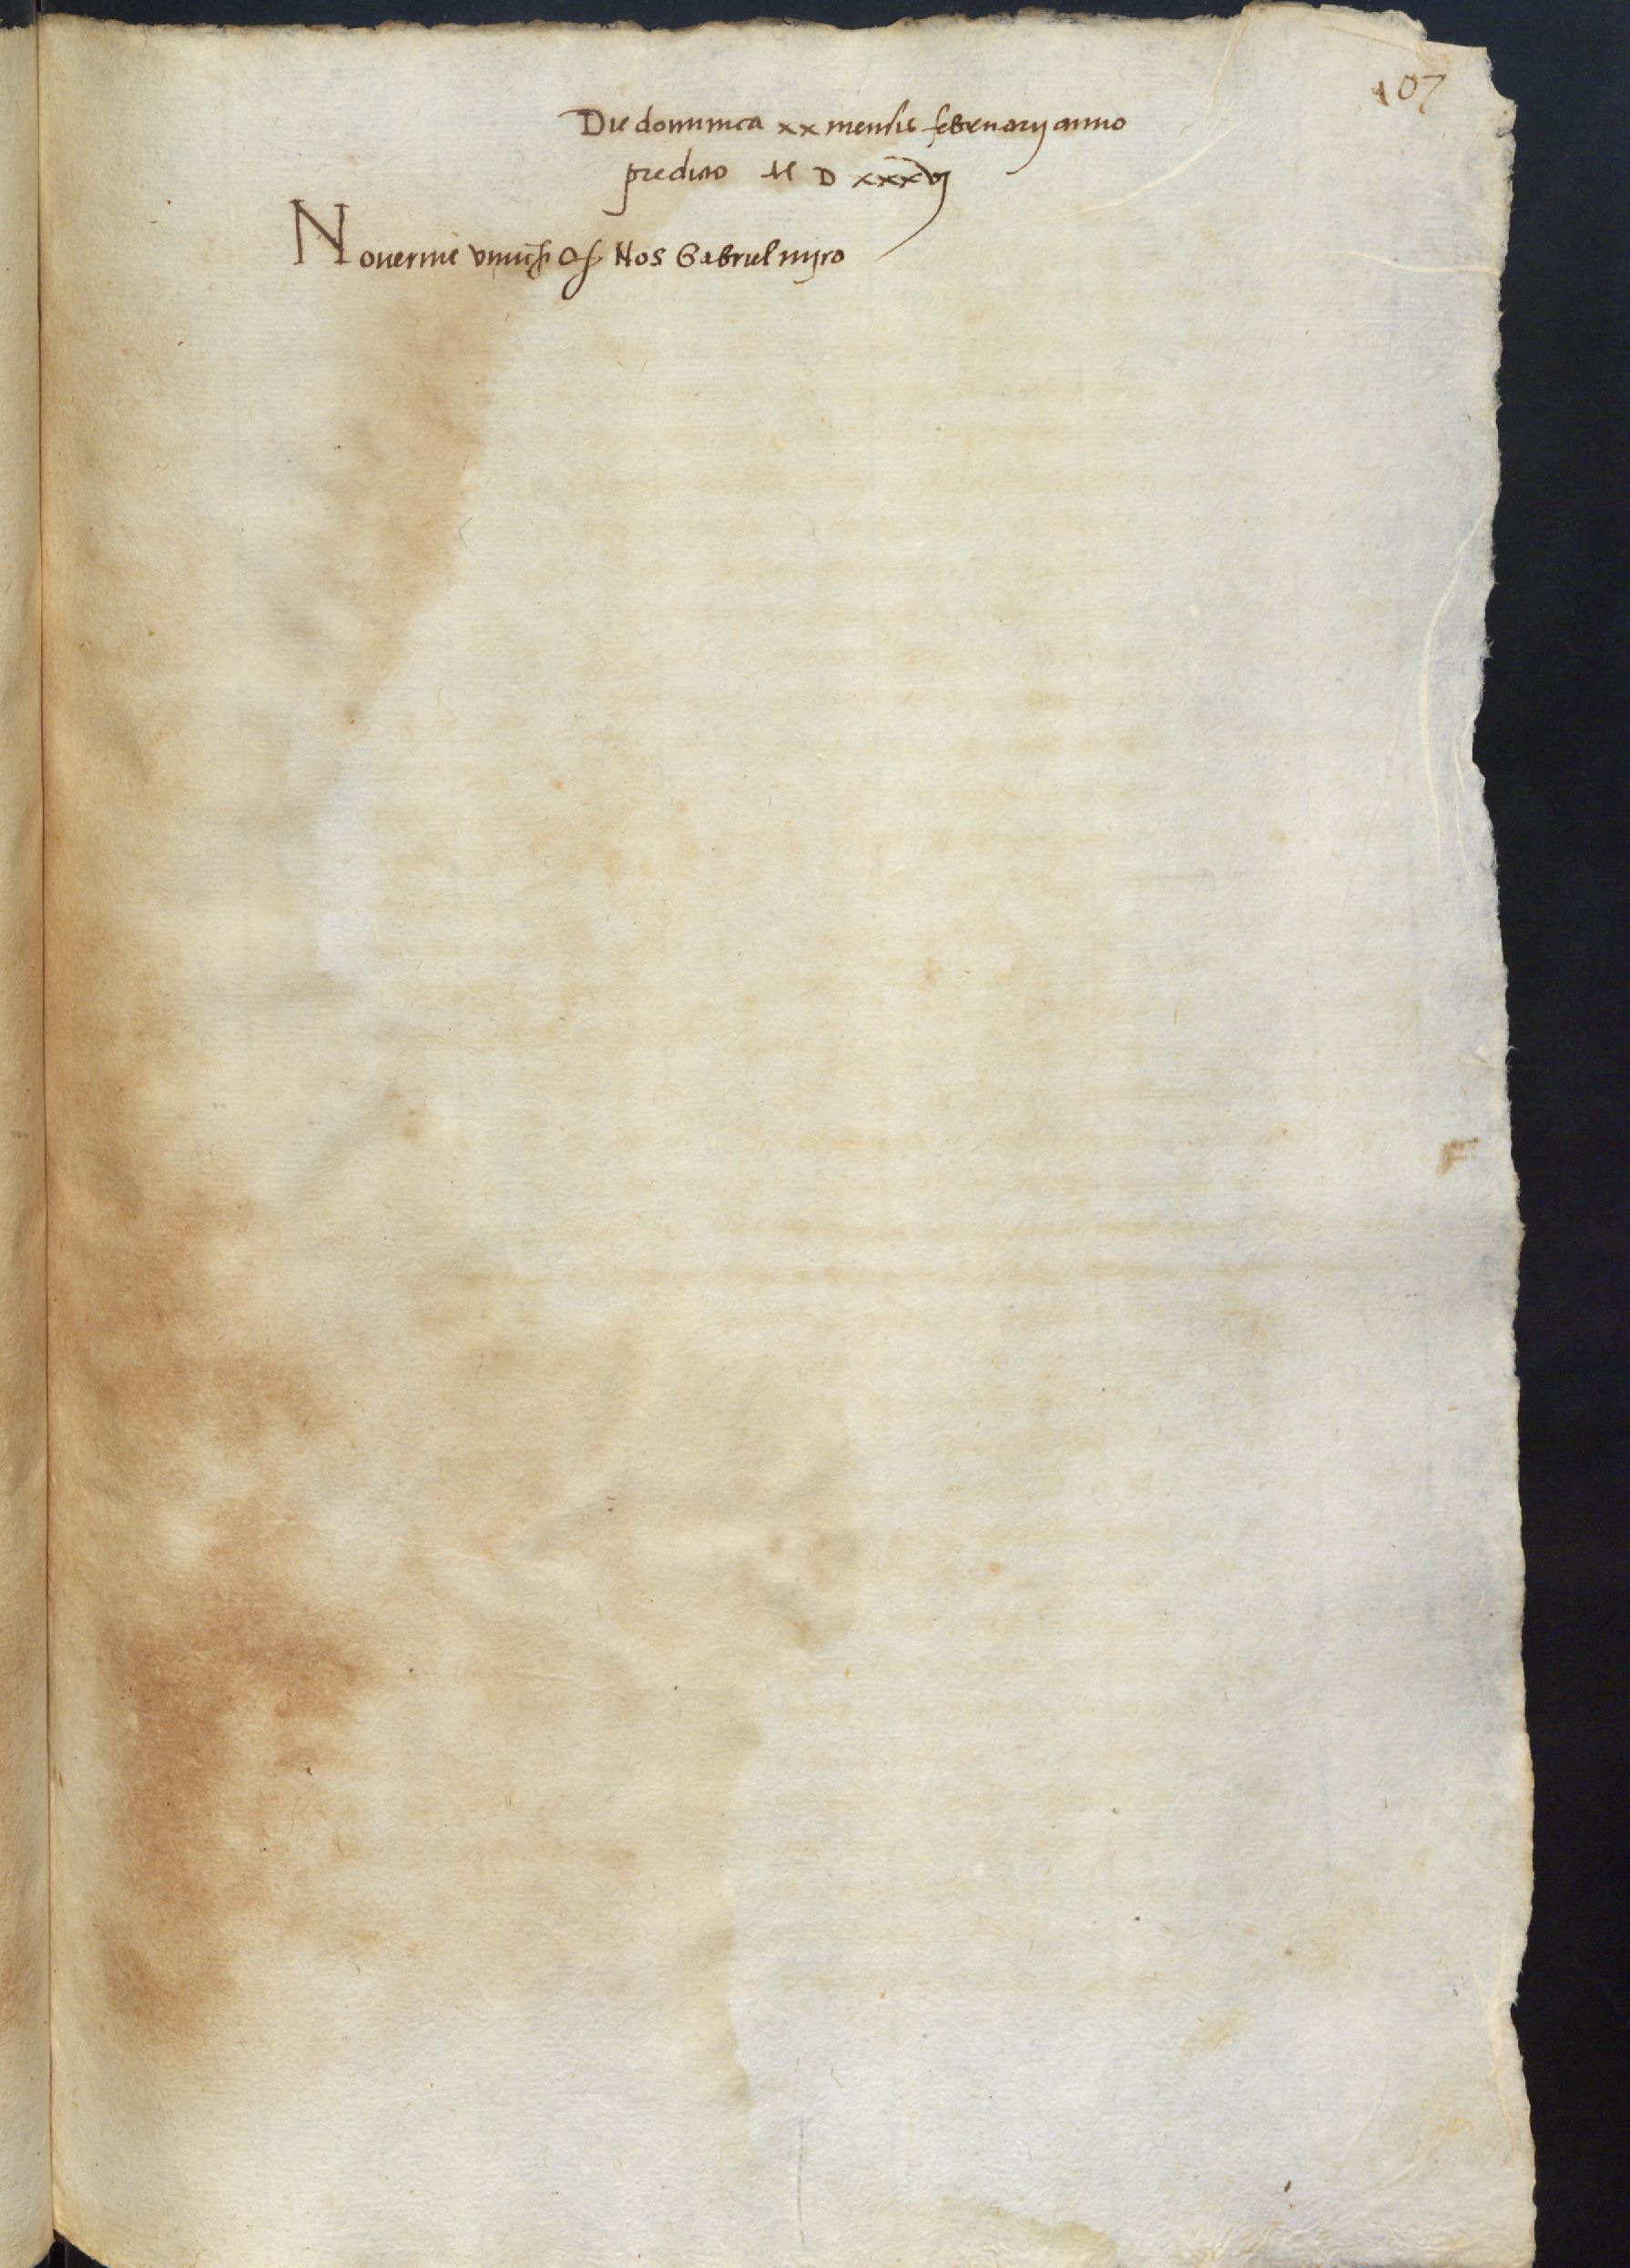 107
Die dominica xx mensis februarij anno
predicto M D xxxvj
Noverint Nos Gabriel miro